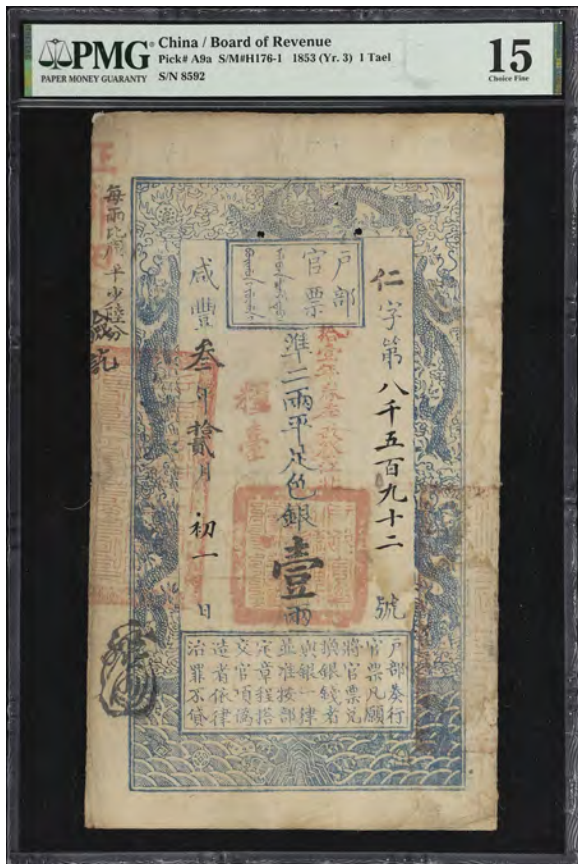 PMG
PAPER MONEY GUARANTY
China / Board of Revenue
Pick# A9a S/M#H176-1 1853 (Yr. 3) 1 Tael
S/N 8592
15
Choice Fine
戶部
官票
仁字第八千五百九十二號
準二兩平足色銀壹兩
咸豐叁年拾貳月初一日
每兩比庫平少陸分
戶部奏行
官票凡願
將官票兌
換銀錢者
與銀一律
並准按部
定章程搭
交官項偽
造者依律
治罪不貸